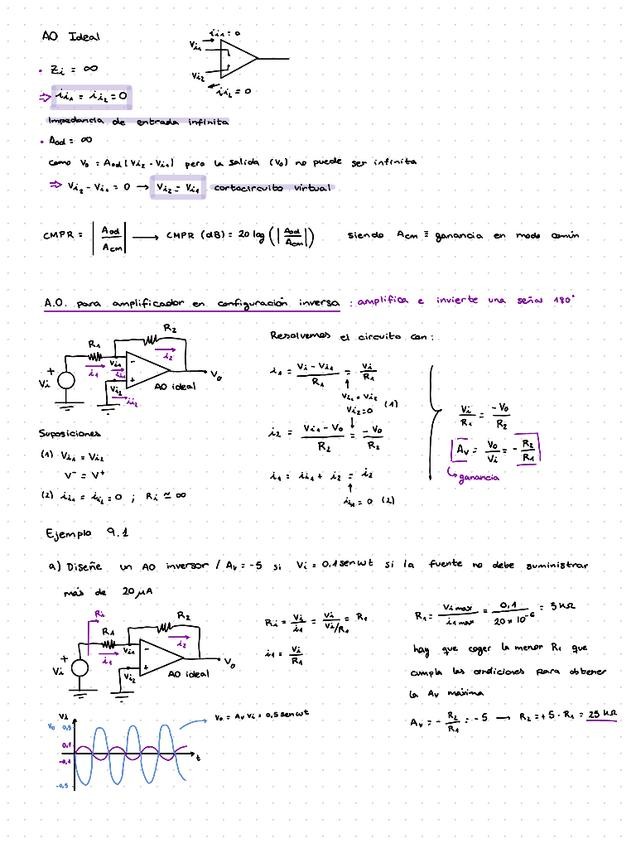 AO Ideal
ii1 = 0
Vi1
Vi2
ii2 = 0
• Zi = ∞
⇒ ii1 = ii2 = 0
Impedancia de entrada infinita
• Aod = ∞
como Vo = Aod (Vi2 - Vi1) pero la salida (Vo) no puede ser infinita
⇒ Vi2 - Vi1 = 0 → Vi2 = Vi1 cortocircuito virtual
CMPR = |Aod/Acm| → CMPR (dB) = 20 log (|Aod/Acm|) siendo Acm ≡ ganancia en modo común
A.O. para amplificador en configuración inversa : amplifica e invierte una señal 180°
R2
R1
i2
Vi1
i1
ii1
Vi
Vi2
ii2
AO ideal
Vo
Resolvemos el circuito con:
i1 = (Vi - Vi1)/R1 = Vi/R1
Vi1 = Vi2
Vi2 = 0 (1)
i2 = (Vi1 - Vo)/R2 = -Vo/R2
i1 = ii1 + i2 = i2
ii1 = 0 (2)
Vi/R1 = -Vo/R2
Av = Vo/Vi = -R2/R1
ganancia
Suposiciones
(1) Vi1 = Vi2
V⁻ = V⁺
(2) ii1 = ii2 = 0 ; Ri ≃ ∞
Ejemplo 9.1
a) Diseñe un AO inversor / Av = -5 si Vi = 0,1 sen wt si la fuente no debe suministrar
más de 20 µA
Ri
R1
R2
i1
i2
Vi1
Vi
Vi2
AO ideal
Vo
Ri = Vi/i1 = Vi/(Vi/R1) = R1
i1 = Vi/R1
R1 = Vi max/i1 max = 0,1/(20×10⁻⁶) = 5 kΩ
hay que coger la menor R1 que
cumpla las condiciones para obtener
la Av máxima
Av = -R2/R1 = -5 → R2 = +5 · R1 = 25 kΩ
Vi
Vo 0,5
0,1
-0,1
-0,5
t
Vo = Av Vi = 0,5 sen wt